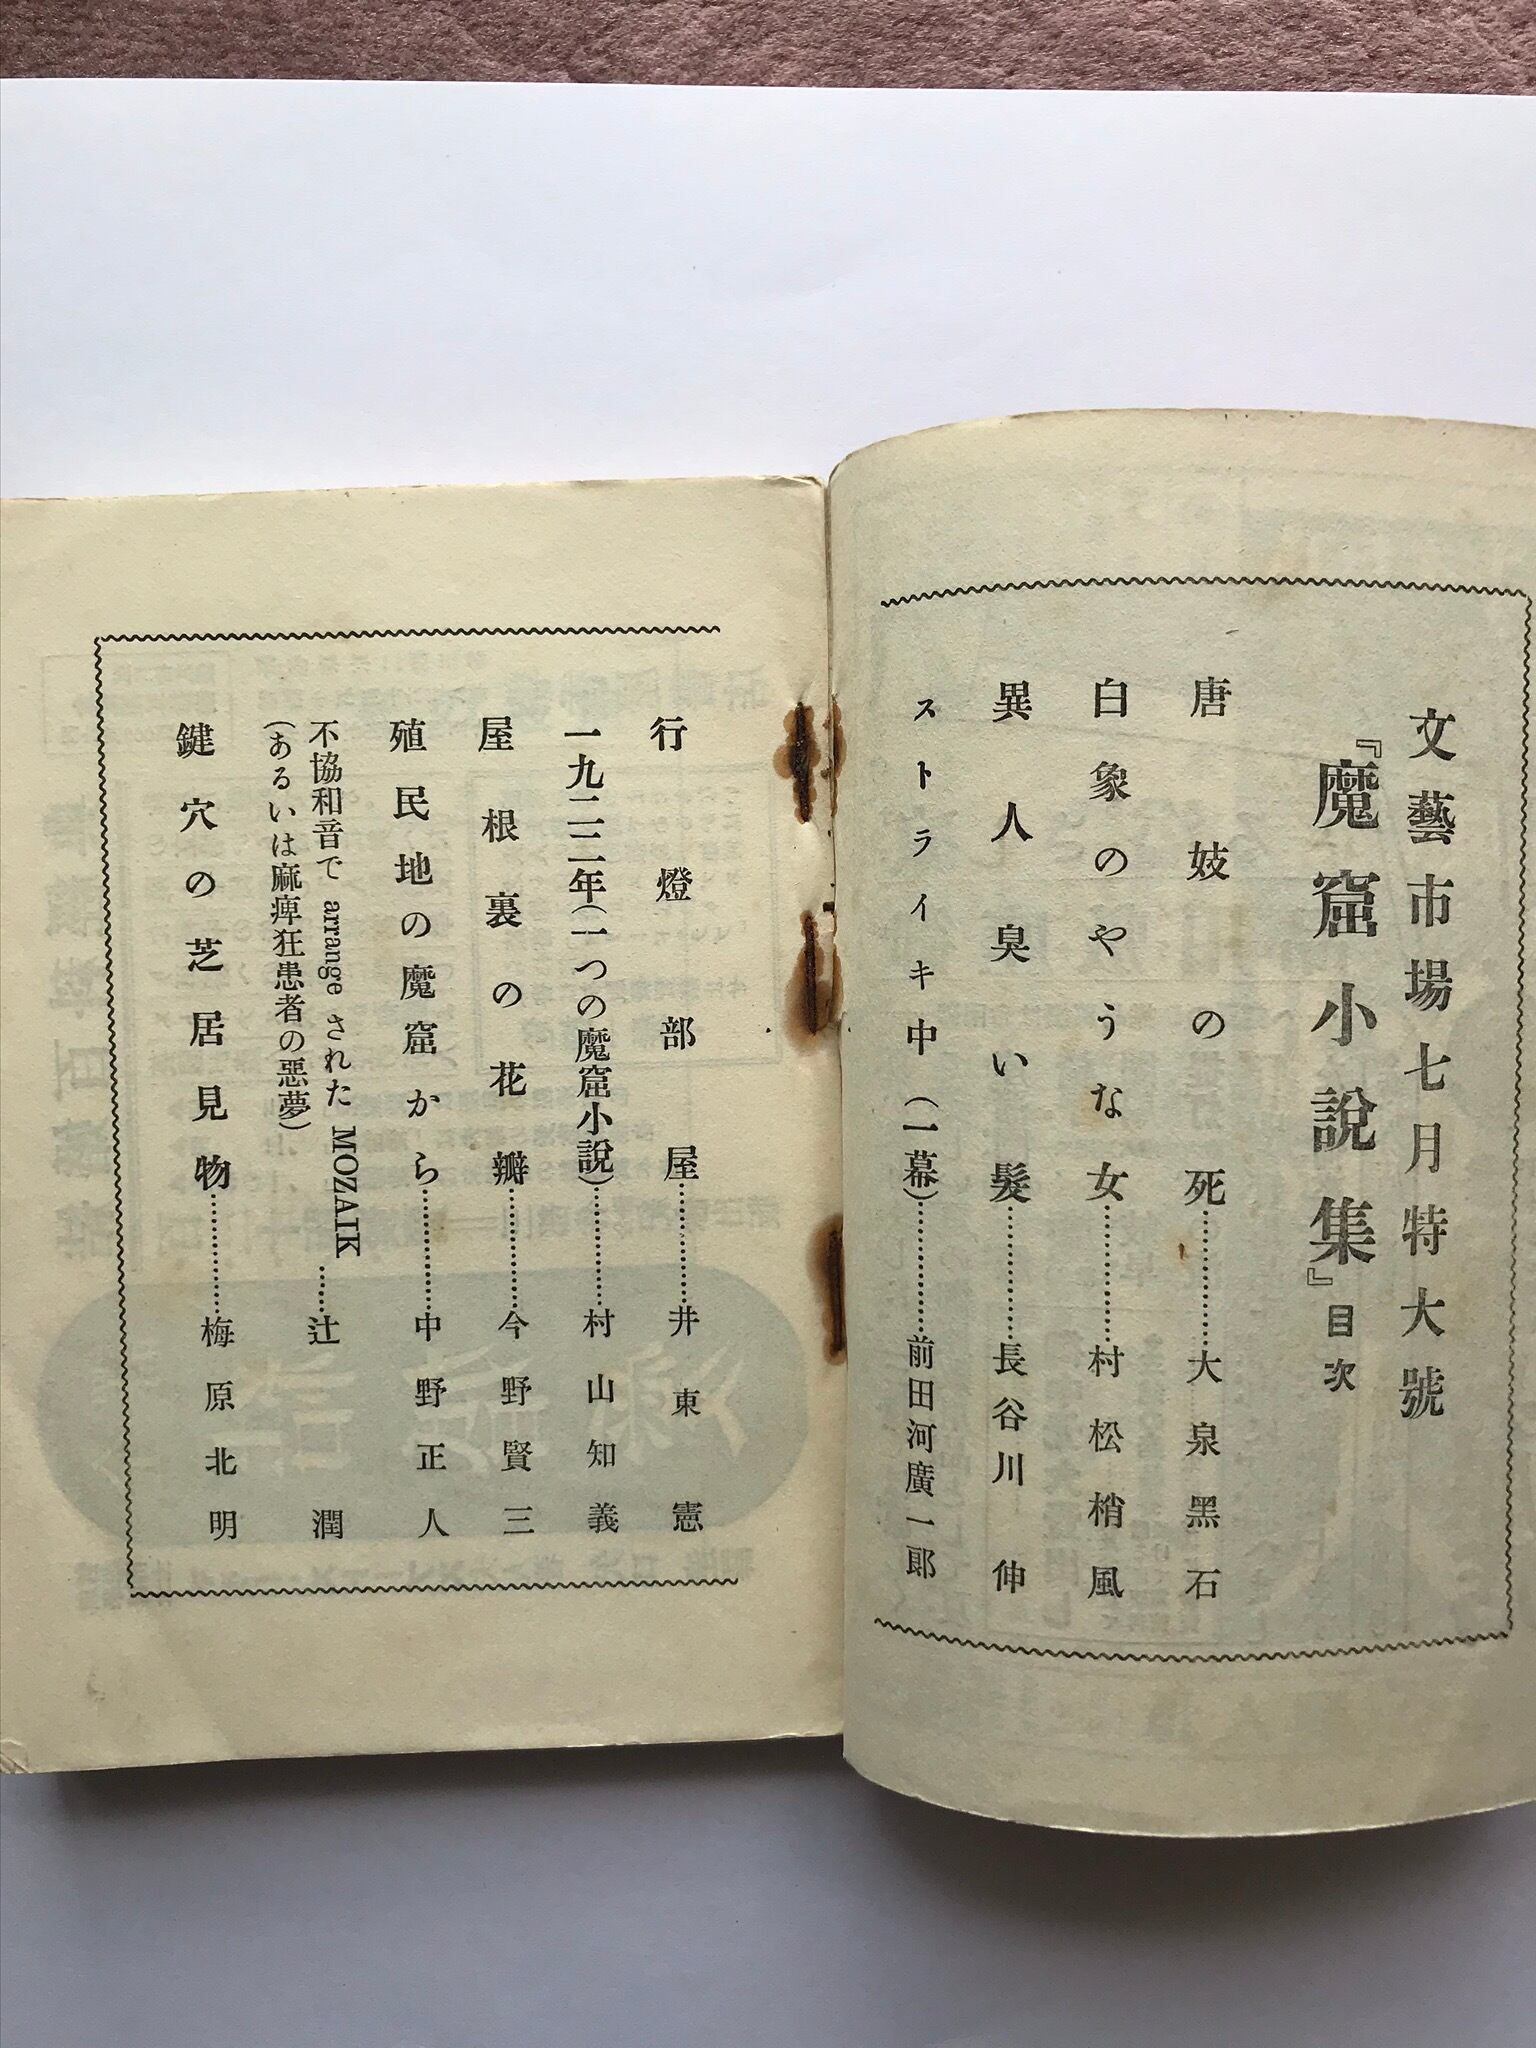 文藝市場七月特大號
『魔窟小說集』目次
唐妓の死…………大泉黑石
白象のやうな女…………村松梢風
異人臭い髮…………長谷川伸
ストライキ中(一幕)…………前田河廣一郞
行燈部屋…………井東憲
一九二二年(一つの魔窟小說)…………村山知義
屋根裏の花瓣…………今野賢三
殖民地の魔窟から…………中野正人
不協和音で arrange された MOZAIK……辻潤
(あるいは麻痺狂患者の惡夢)
鍵穴の芝居見物…………梅原北明